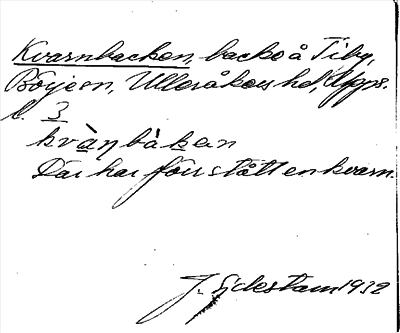 Kvarnbacken, backe å Tiby,
Börje sn, Ulleråkers hd, Upps.
l. 3
kvàṇbàken
Där har förr stått en kvarn.
J. Sjdestam 1932